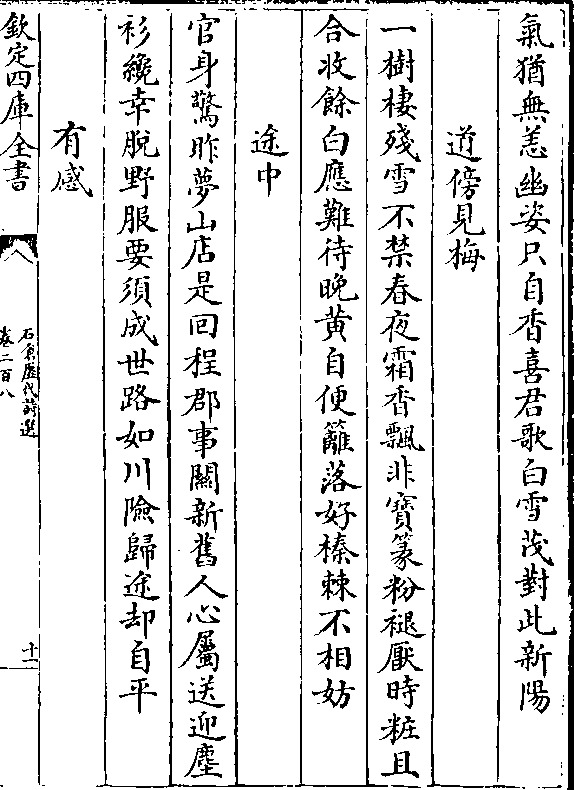 氣猶無恙幽姿只自香喜君歌白雪茂對此新陽
道傍見梅
一樹棲殘雪不禁春夜霜香飄非寶篆粉褪厭時粧且
合收餘白應難待晚黃自便籬落好榛棘不相妨
途中
官身驚昨夢山店是回程郡事關新舊人心屬送迎塵
衫纔幸脫野服要須成世路如川險歸途却自平
有感
欽定四庫全書
石倉歷代詩選
卷二百八
十一